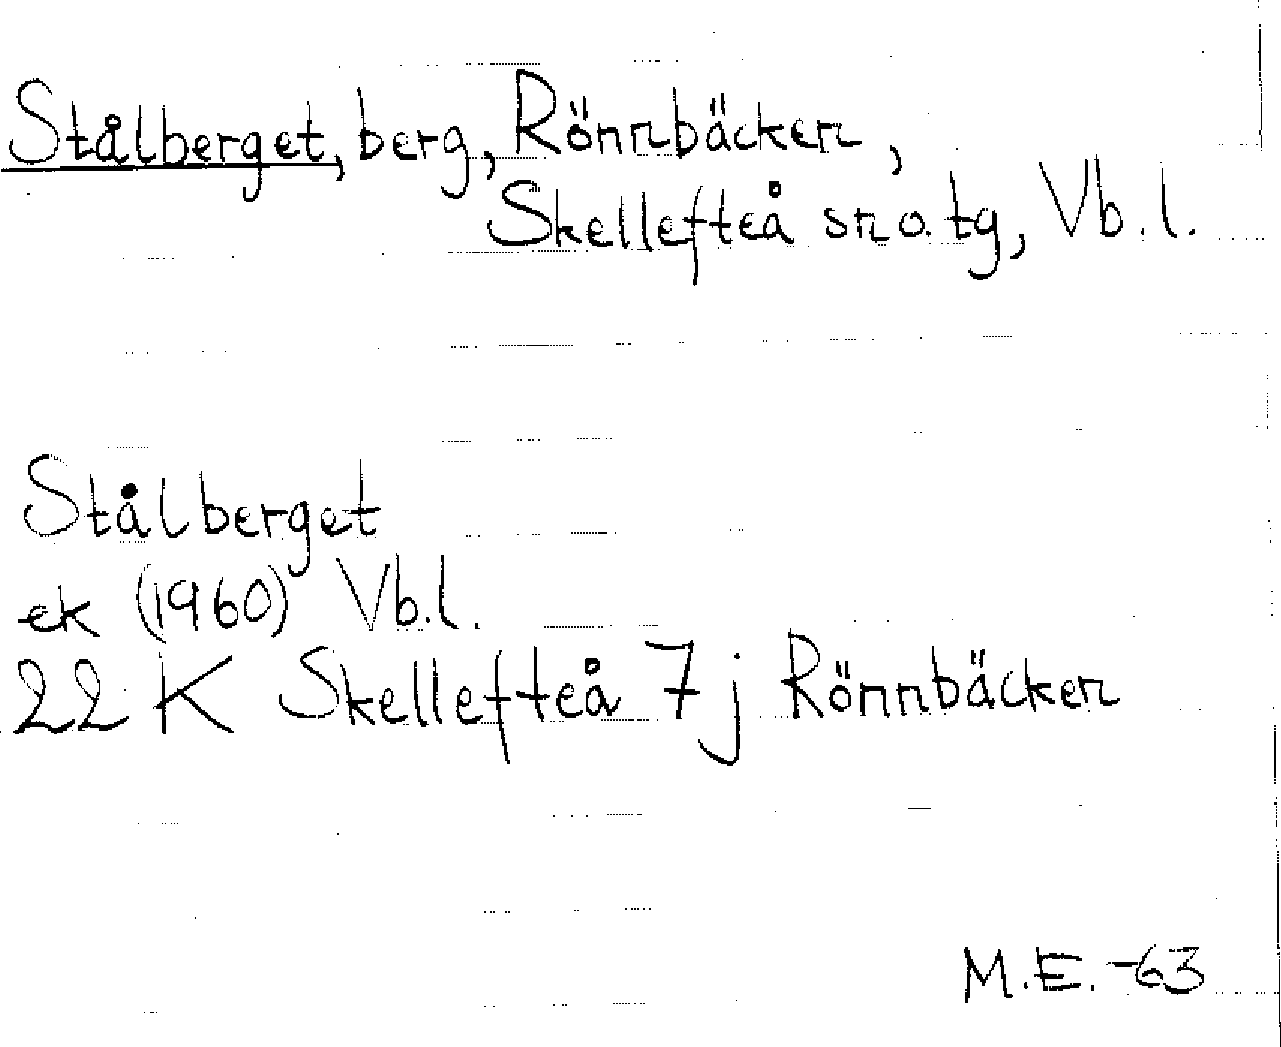 Stålberget, berg, Rönnbäcken,
Skellefteå sn o. tg, Vb. l.
Stålberget
ek (1960) Vb.l.
22 K Skellefteå 7j Rönnbäcken
M.E. -63